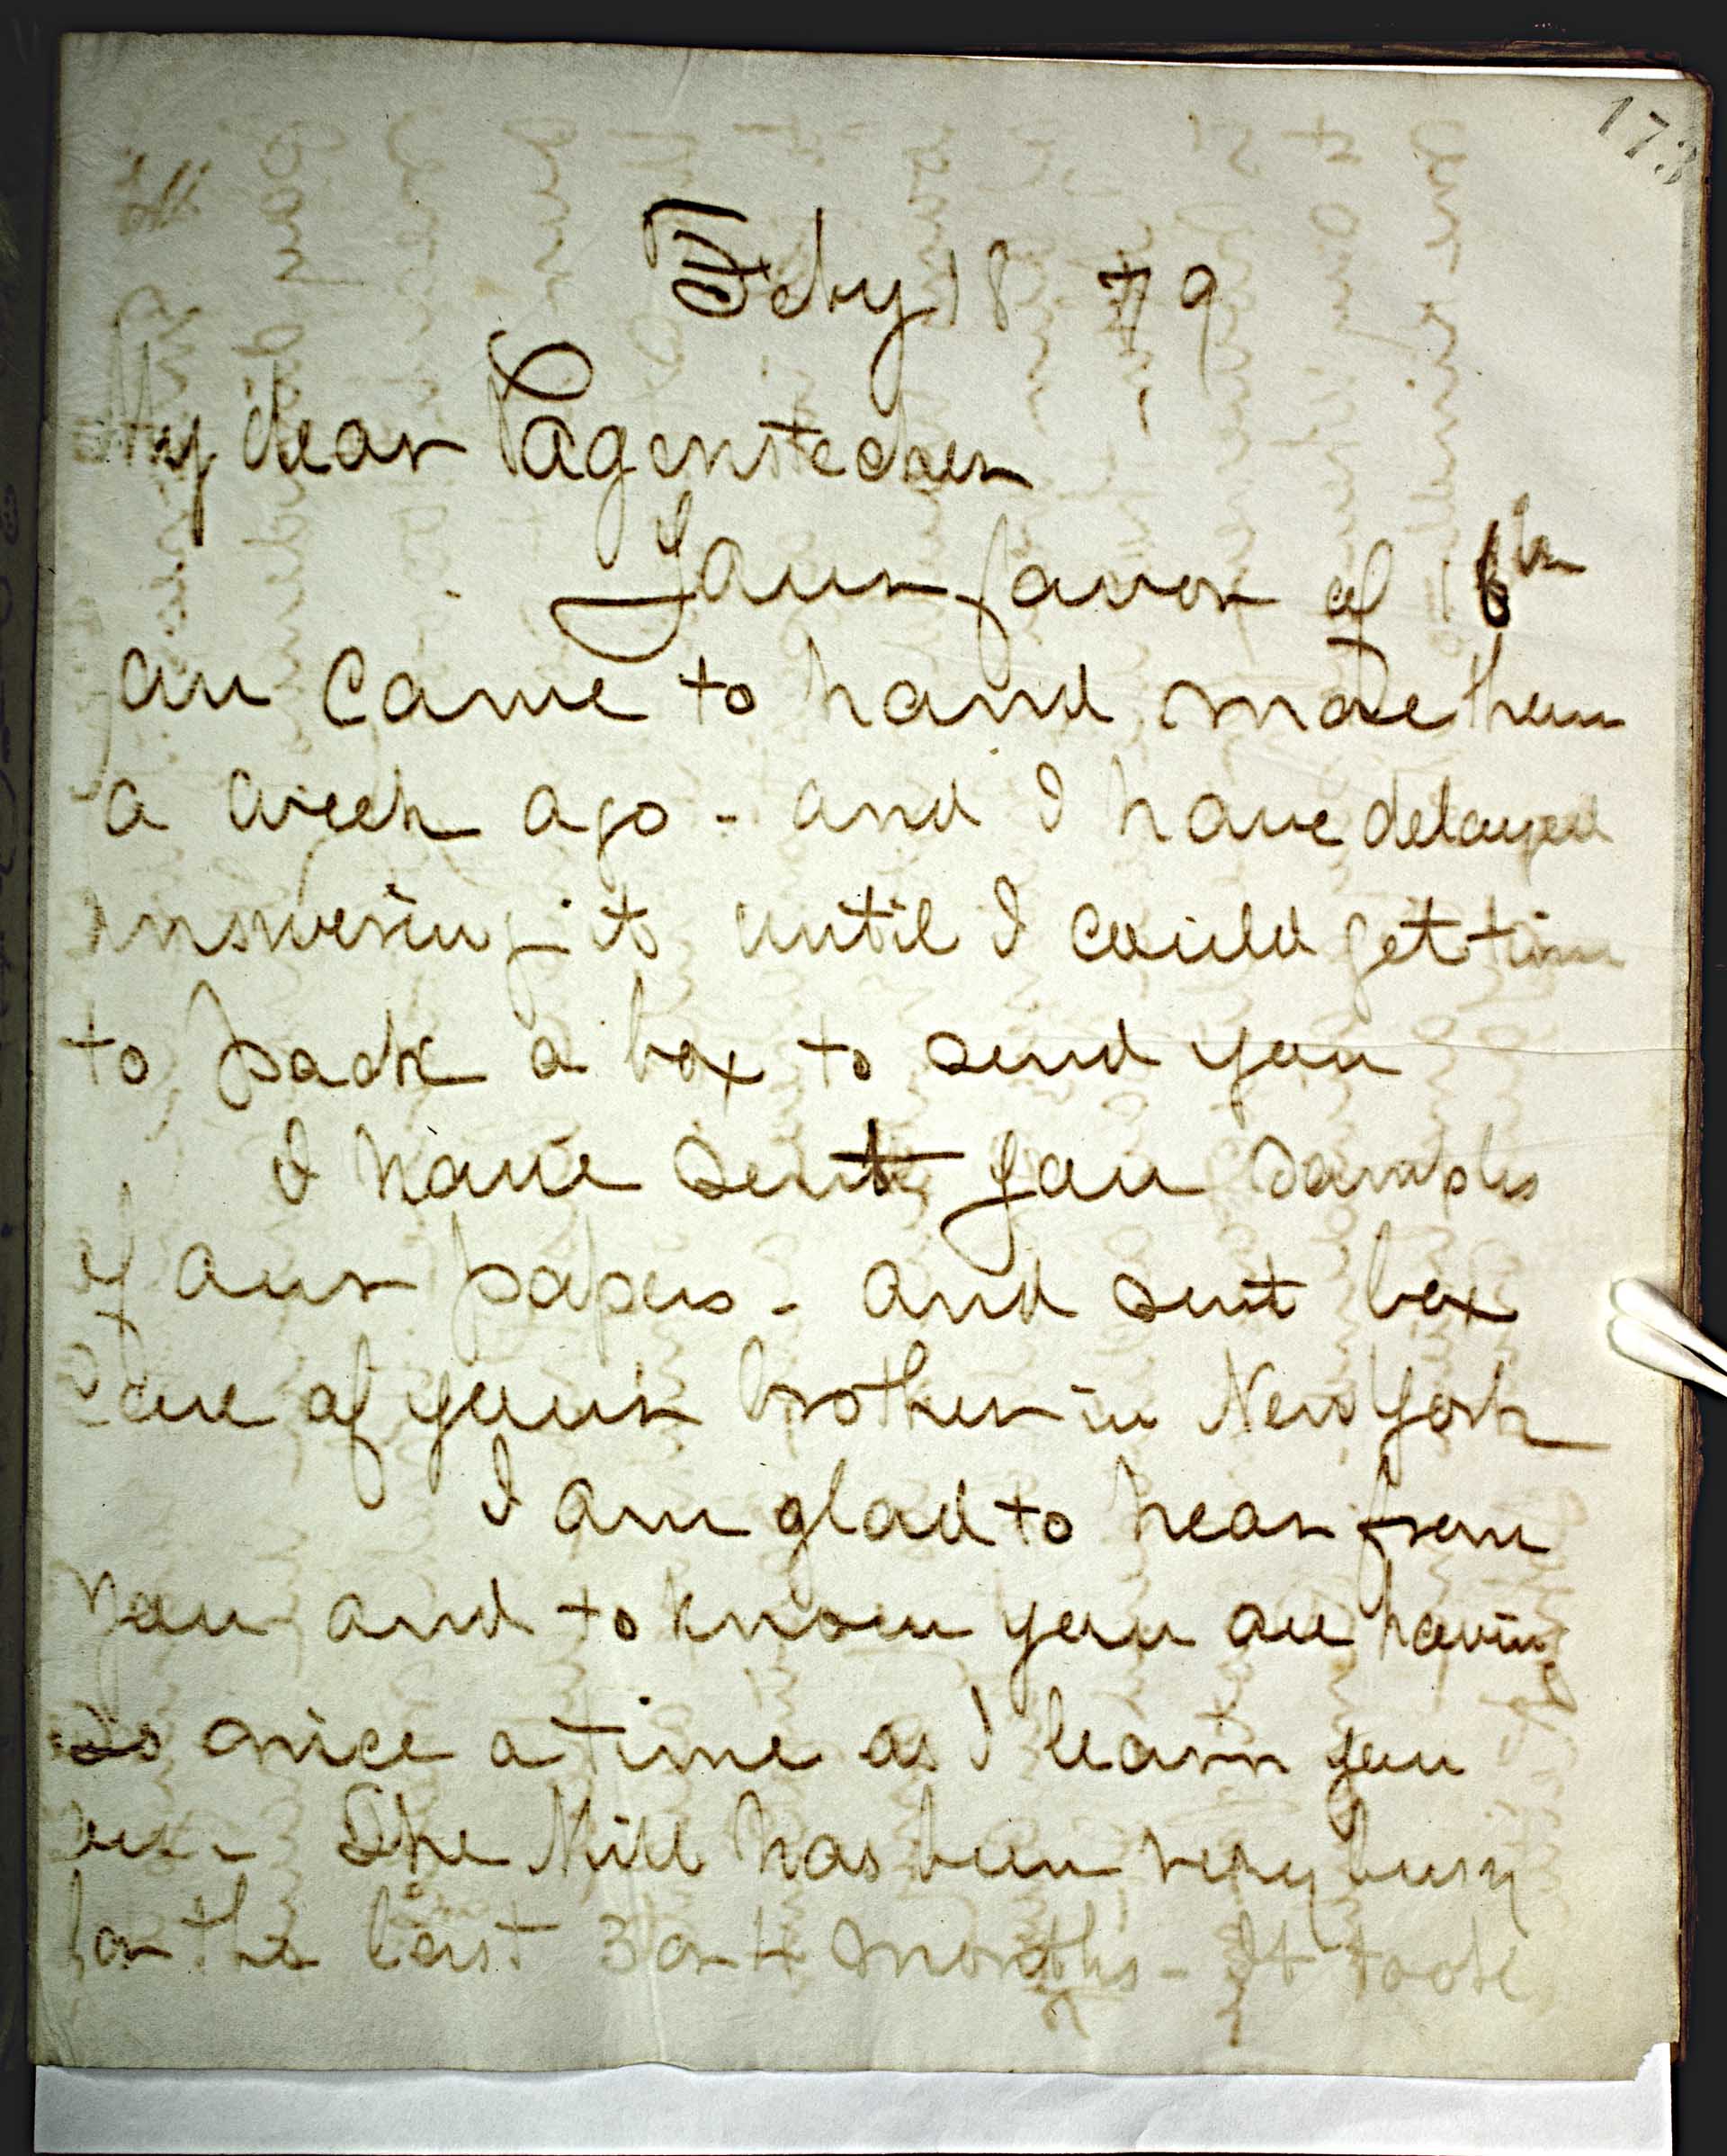 173
Feby 18 79
My dear Pagenstecher
Your favor of 16th
came to hand more than
a week ago - and I have delayed
answering it until I could get time
to pack a box to send you
I have sent you samples
of our papers - and sent box
care of your brother in New York
I am glad to hear from
you and to know you are having
as nice a time as I learn you
The Mill has been very busy
for the last 3 or 4 months - It took